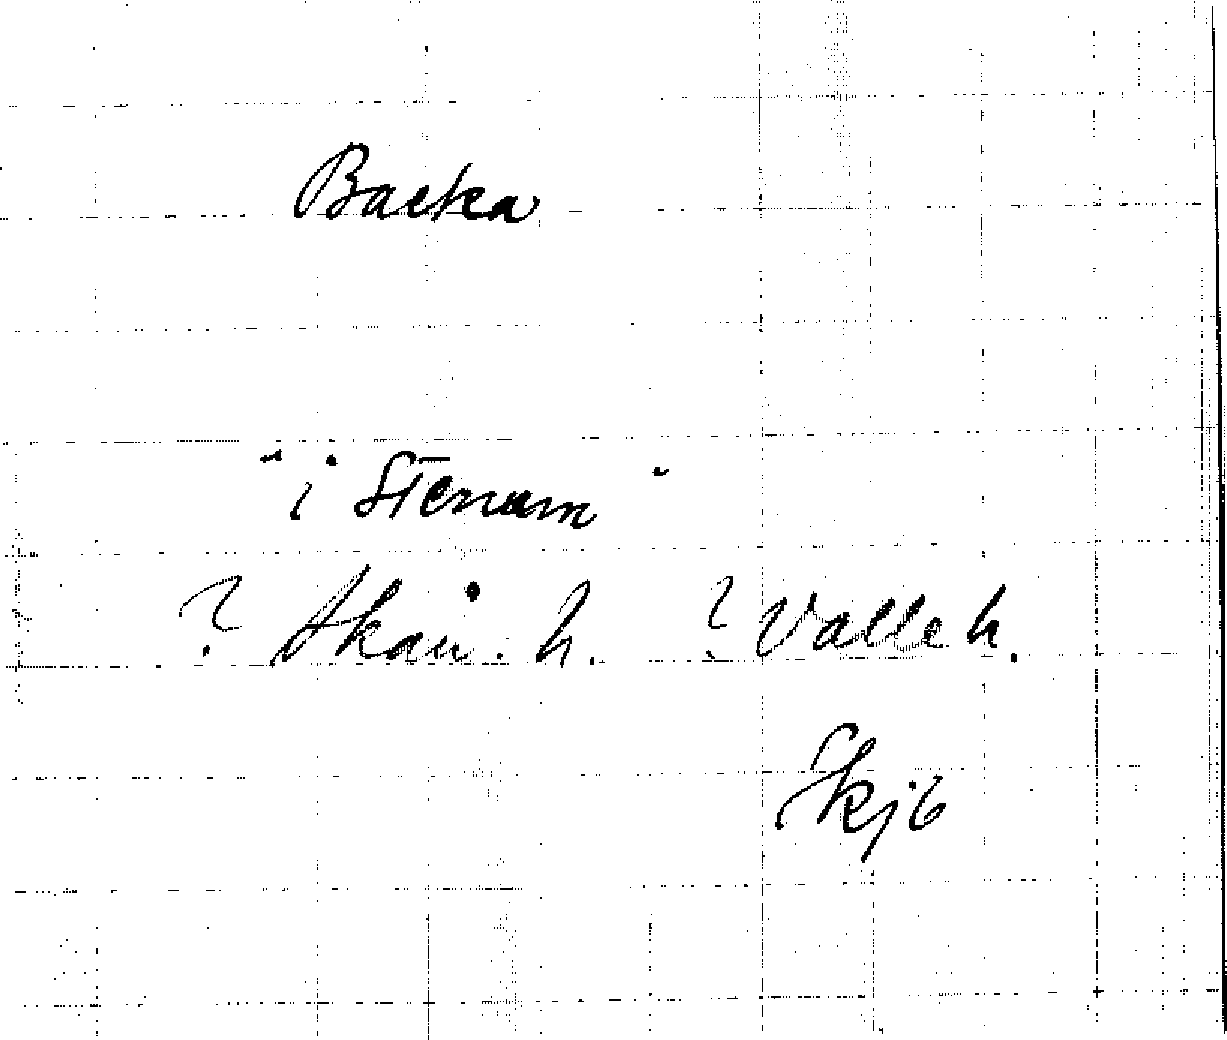 Backa
"i Stenum"
? Skån. h. ? Valle h.
Skjb